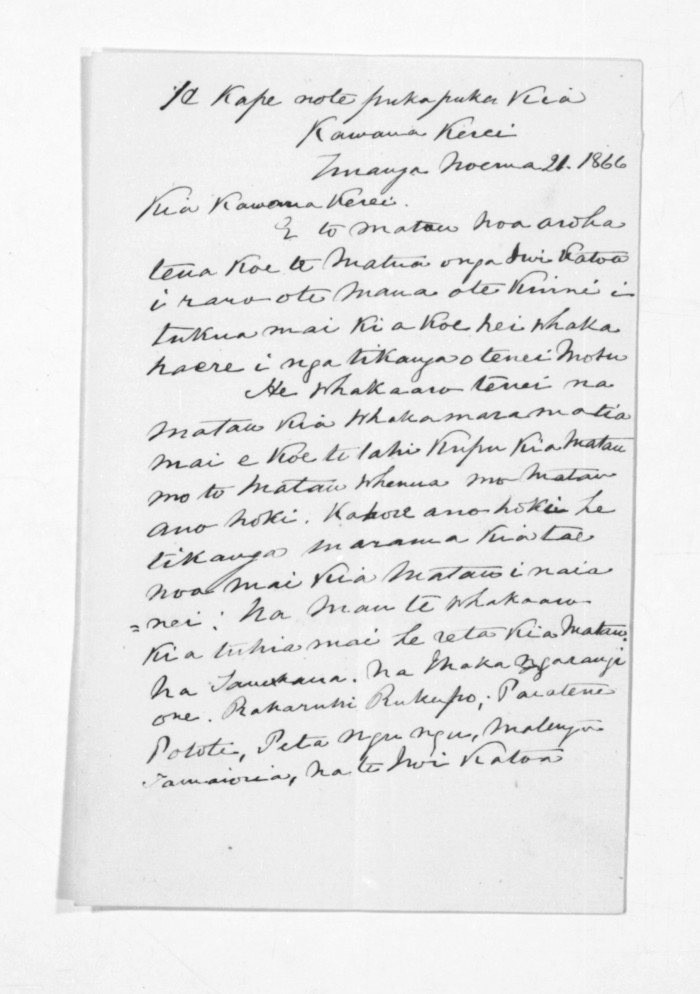 He Kape note pukapuka Kia
Kawana Kerei
Turanga Noema 21. 1866
Kia Kawana Kerei.
E to matau hoa aroha
tena koe te Matua o nga Iwi Katoa
i raro o te Mana o te Kuini i
tukua mai ki a koe hei whaka
haere i nga tikanga o tenei Motu
He whakaaro tenei na
matau kia whakamaramatia
mai e koe te tahi kupu kia Matau
mo to Matau whenua mo Matau
ano hoki. Kahore ano hoki he
tikanga marama kia tae
noa mai kia Matau i naia
=nei; Na Mau te whakaaro
kia tuhia mai he reta kia Matau.
Na Tamihana. Na Ihaka Ngarangi
one. Raharuhi Rukupo, Paratene
Potote, Peta ngu ngu, Matenga
Tamaioria, na te Iwi Katoa